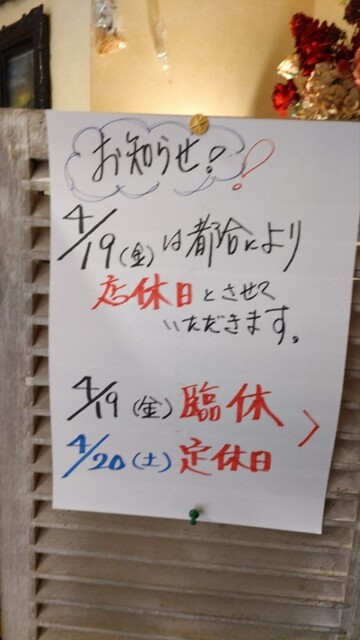 お知らせ!!
4/19(金)は都合により
店休日とさせて
いただきます。
4/19(金)臨休
4/20(土)定休日